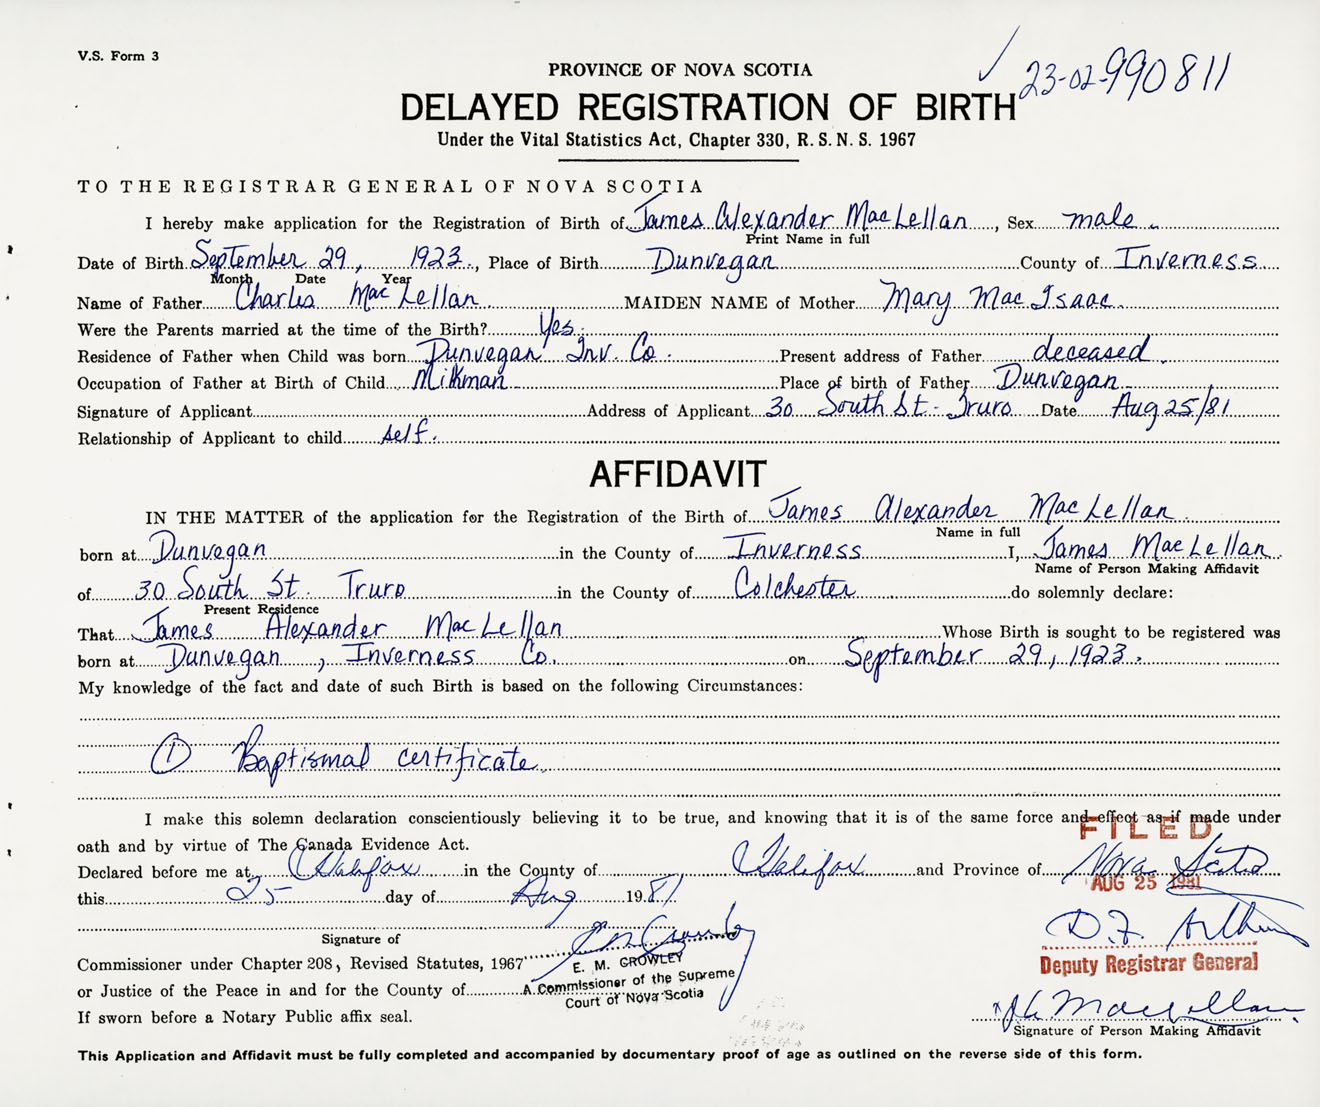 V.S. Form 3
23-02-990811
PROVINCE OF NOVA SCOTIA
DELAYED REGISTRATION OF BIRTH
Under the Vital Statistics Act, Chapter 330, R. S. N. S. 1967
TO THE REGISTRAR GENERAL OF NOVA SCOTIA
I hereby make application for the Registration of Birth of James Alexander MacLellan, Sex male.
Print Name in full
Date of Birth September 29, 1923., Place of Birth Dunvegan County of Inverness
Month Date Year
Name of Father Charles MacLellan MAIDEN NAME of Mother Mary MacIsaac.
Were the Parents married at the time of the Birth? Yes.
Residence of Father when Child was born Dunvegan Inv. Co. Present address of Father deceased.
Occupation of Father at Birth of Child Milkman Place of birth of Father Dunvegan
Signature of Applicant Address of Applicant 30 South St - Truro Date Aug 25/81
Relationship of Applicant to child self.
AFFIDAVIT
IN THE MATTER of the application for the Registration of the Birth of James Alexander MacLellan
Name in full
born at Dunvegan in the County of Inverness I, James MacLellan
Name of Person Making Affidavit
of 30 South St. Truro in the County of Colchester do solemnly declare:
Present Residence
That James Alexander MacLellan Whose Birth is sought to be registered was
born at Dunvegan, Inverness Co. on September 29, 1923.
My knowledge of the fact and date of such Birth is based on the following Circumstances:
① Baptismal certificate
I make this solemn declaration conscientiously believing it to be true, and knowing that it is of the same force and effect as if made under
FILED
oath and by virtue of The Canada Evidence Act.
Declared before me at Halifax in the County of Halifax and Province of Nova Scotia
AUG 25 1981
this 25 day of Aug 1981
D.F. Arthur
Signature of
Commissioner under Chapter 208, Revised Statutes, 1967
E. M. CROWLEY
Deputy Registrar General
or Justice of the Peace in and for the County of
A Commissioner of the Supreme
Court of Nova Scotia
J A MacLellan
If sworn before a Notary Public affix seal.
Signature of Person Making Affidavit
This Application and Affidavit must be fully completed and accompanied by documentary proof of age as outlined on the reverse side of this form.